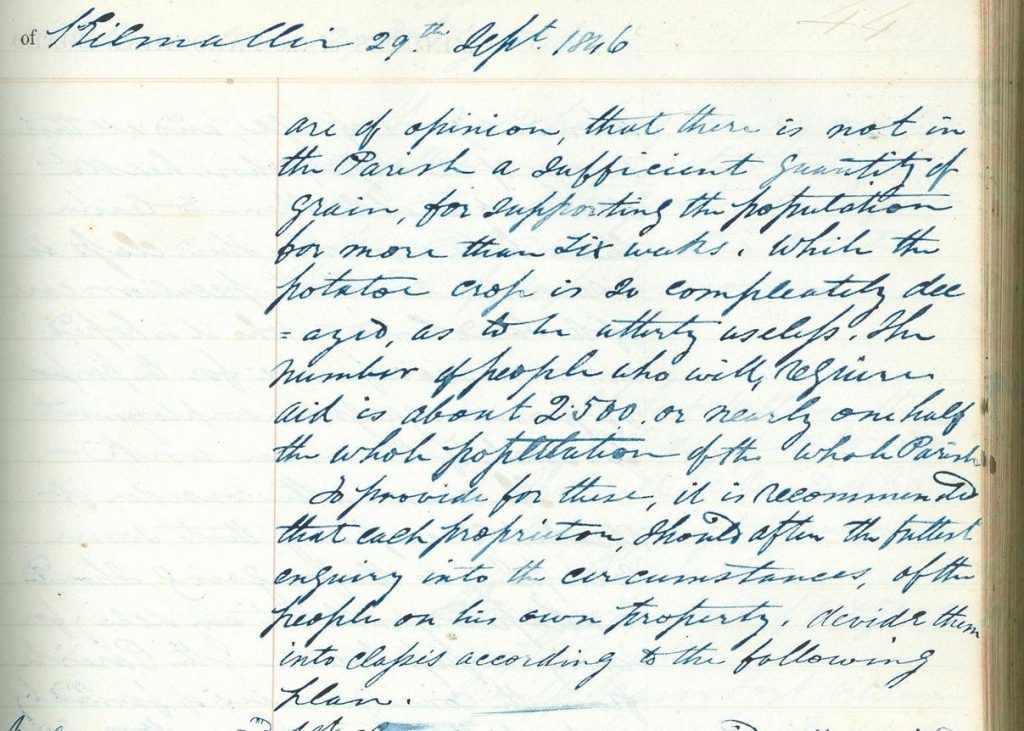 of Kilmallie 29th Sept. 1846
are of opinion, that there is not in
the Parish a sufficient quantity of
grain, for supporting the population
for more than six weeks. While the
potatoe crop is so compleatily dec
=ayed, as to be utterly useless. The
number of people who will, require
aid is about 2.500. or nearly one half
the whole popltlation of the whole Parish
To provide for these, it is recommended
that each proprietor, should after the fullest
enquiry into the circumstances, of the
people on his own property. devide them
into classis according to the following
plan.